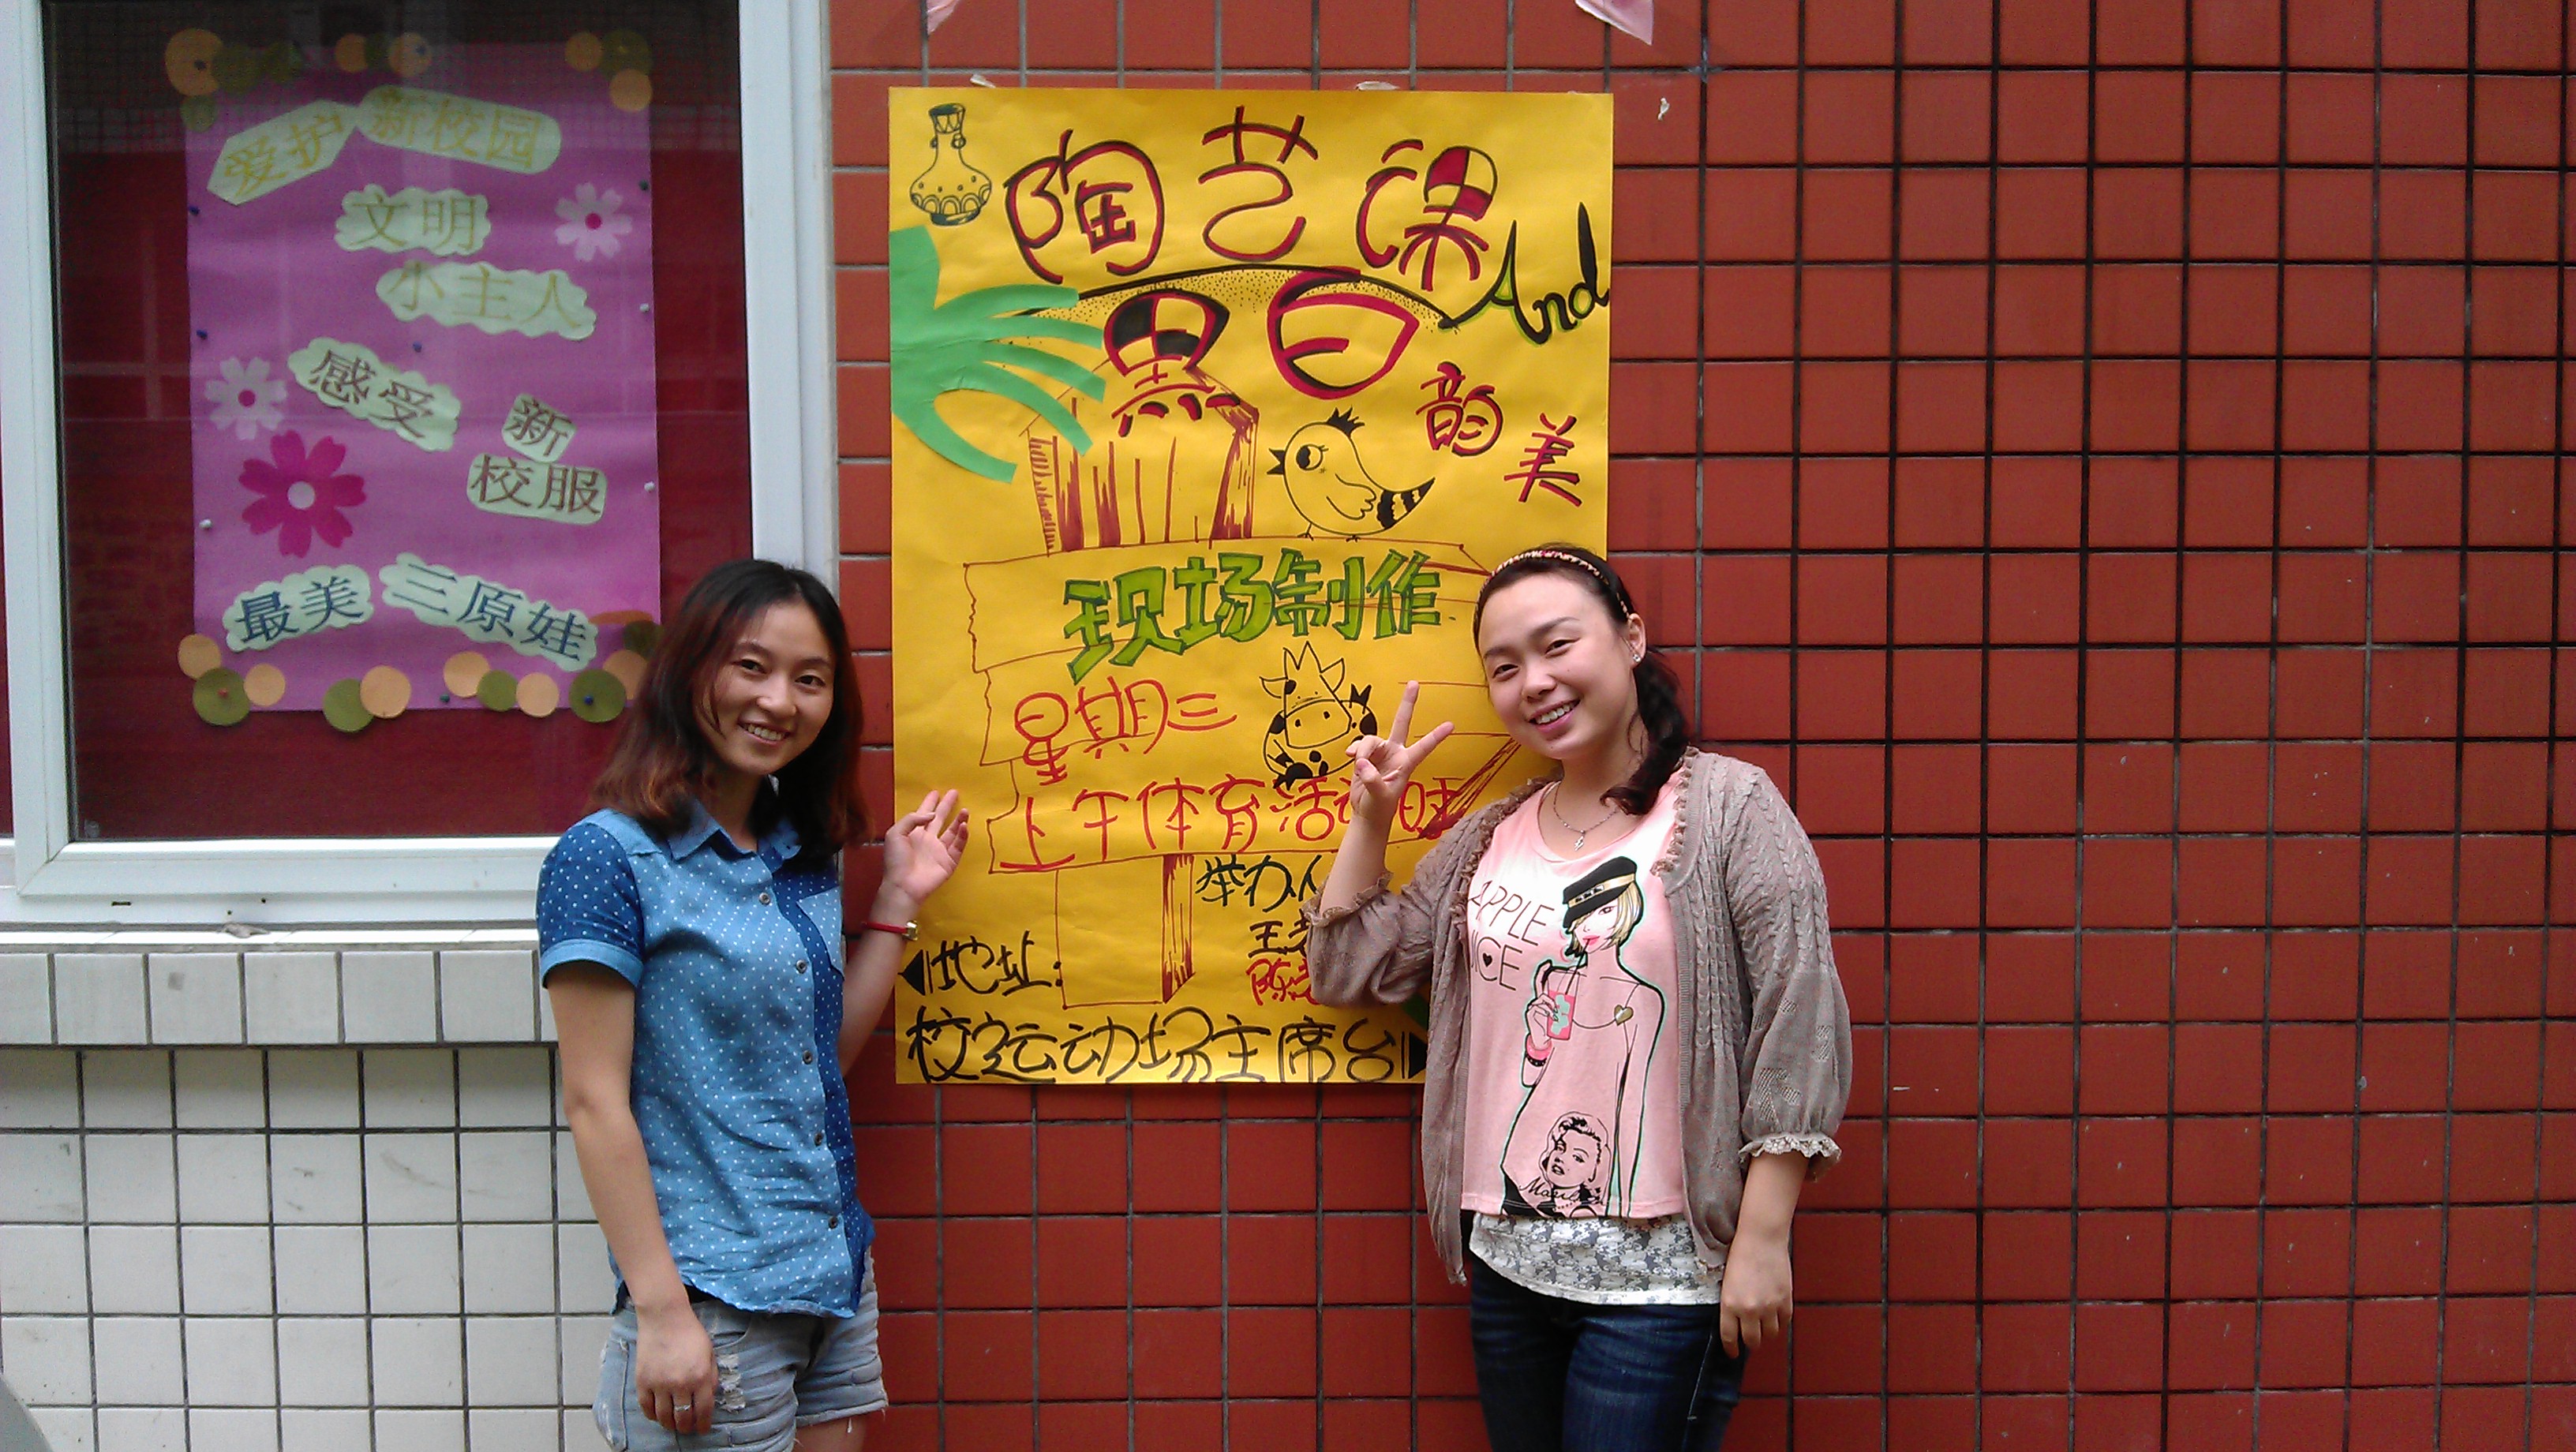 爱护 新校园
文明
小主人
感受
新
校服
最美 三原娃
陶艺课
And
黑白
韵美
现场制作
星期三
上午体育活动时
举办人
王
陈
地址:
校运动场主席台
APPLE
ICE